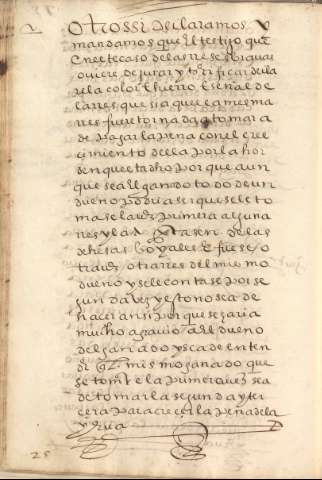 Otrossi declaramos y
mandamos que el testigo que
en este caso de las rreses
oviere de jurar y
rela color El hierro E señal de
la rres que sia que e la mesma
rres fuere torna da a tomar a
de pagar la pena con el cre
cimiento della por la hor
den que esta dho por que aun
que sea El ganado todo de un
dueño podria ser que se le to
mase la primera alguna
rres y la sen de las
dehesas boyales E fuese o
tra otra rres del mismo
dueño y se le contase por se
gunda vez y esto no se a de
hacer ansi por que seria
mucho agravio al dueño
del ganado y se a de enten
der mismo ganado que
se tome la primera vez sea
de tomar la segunda y ter
cera para crecer la peña de la
yerva
25